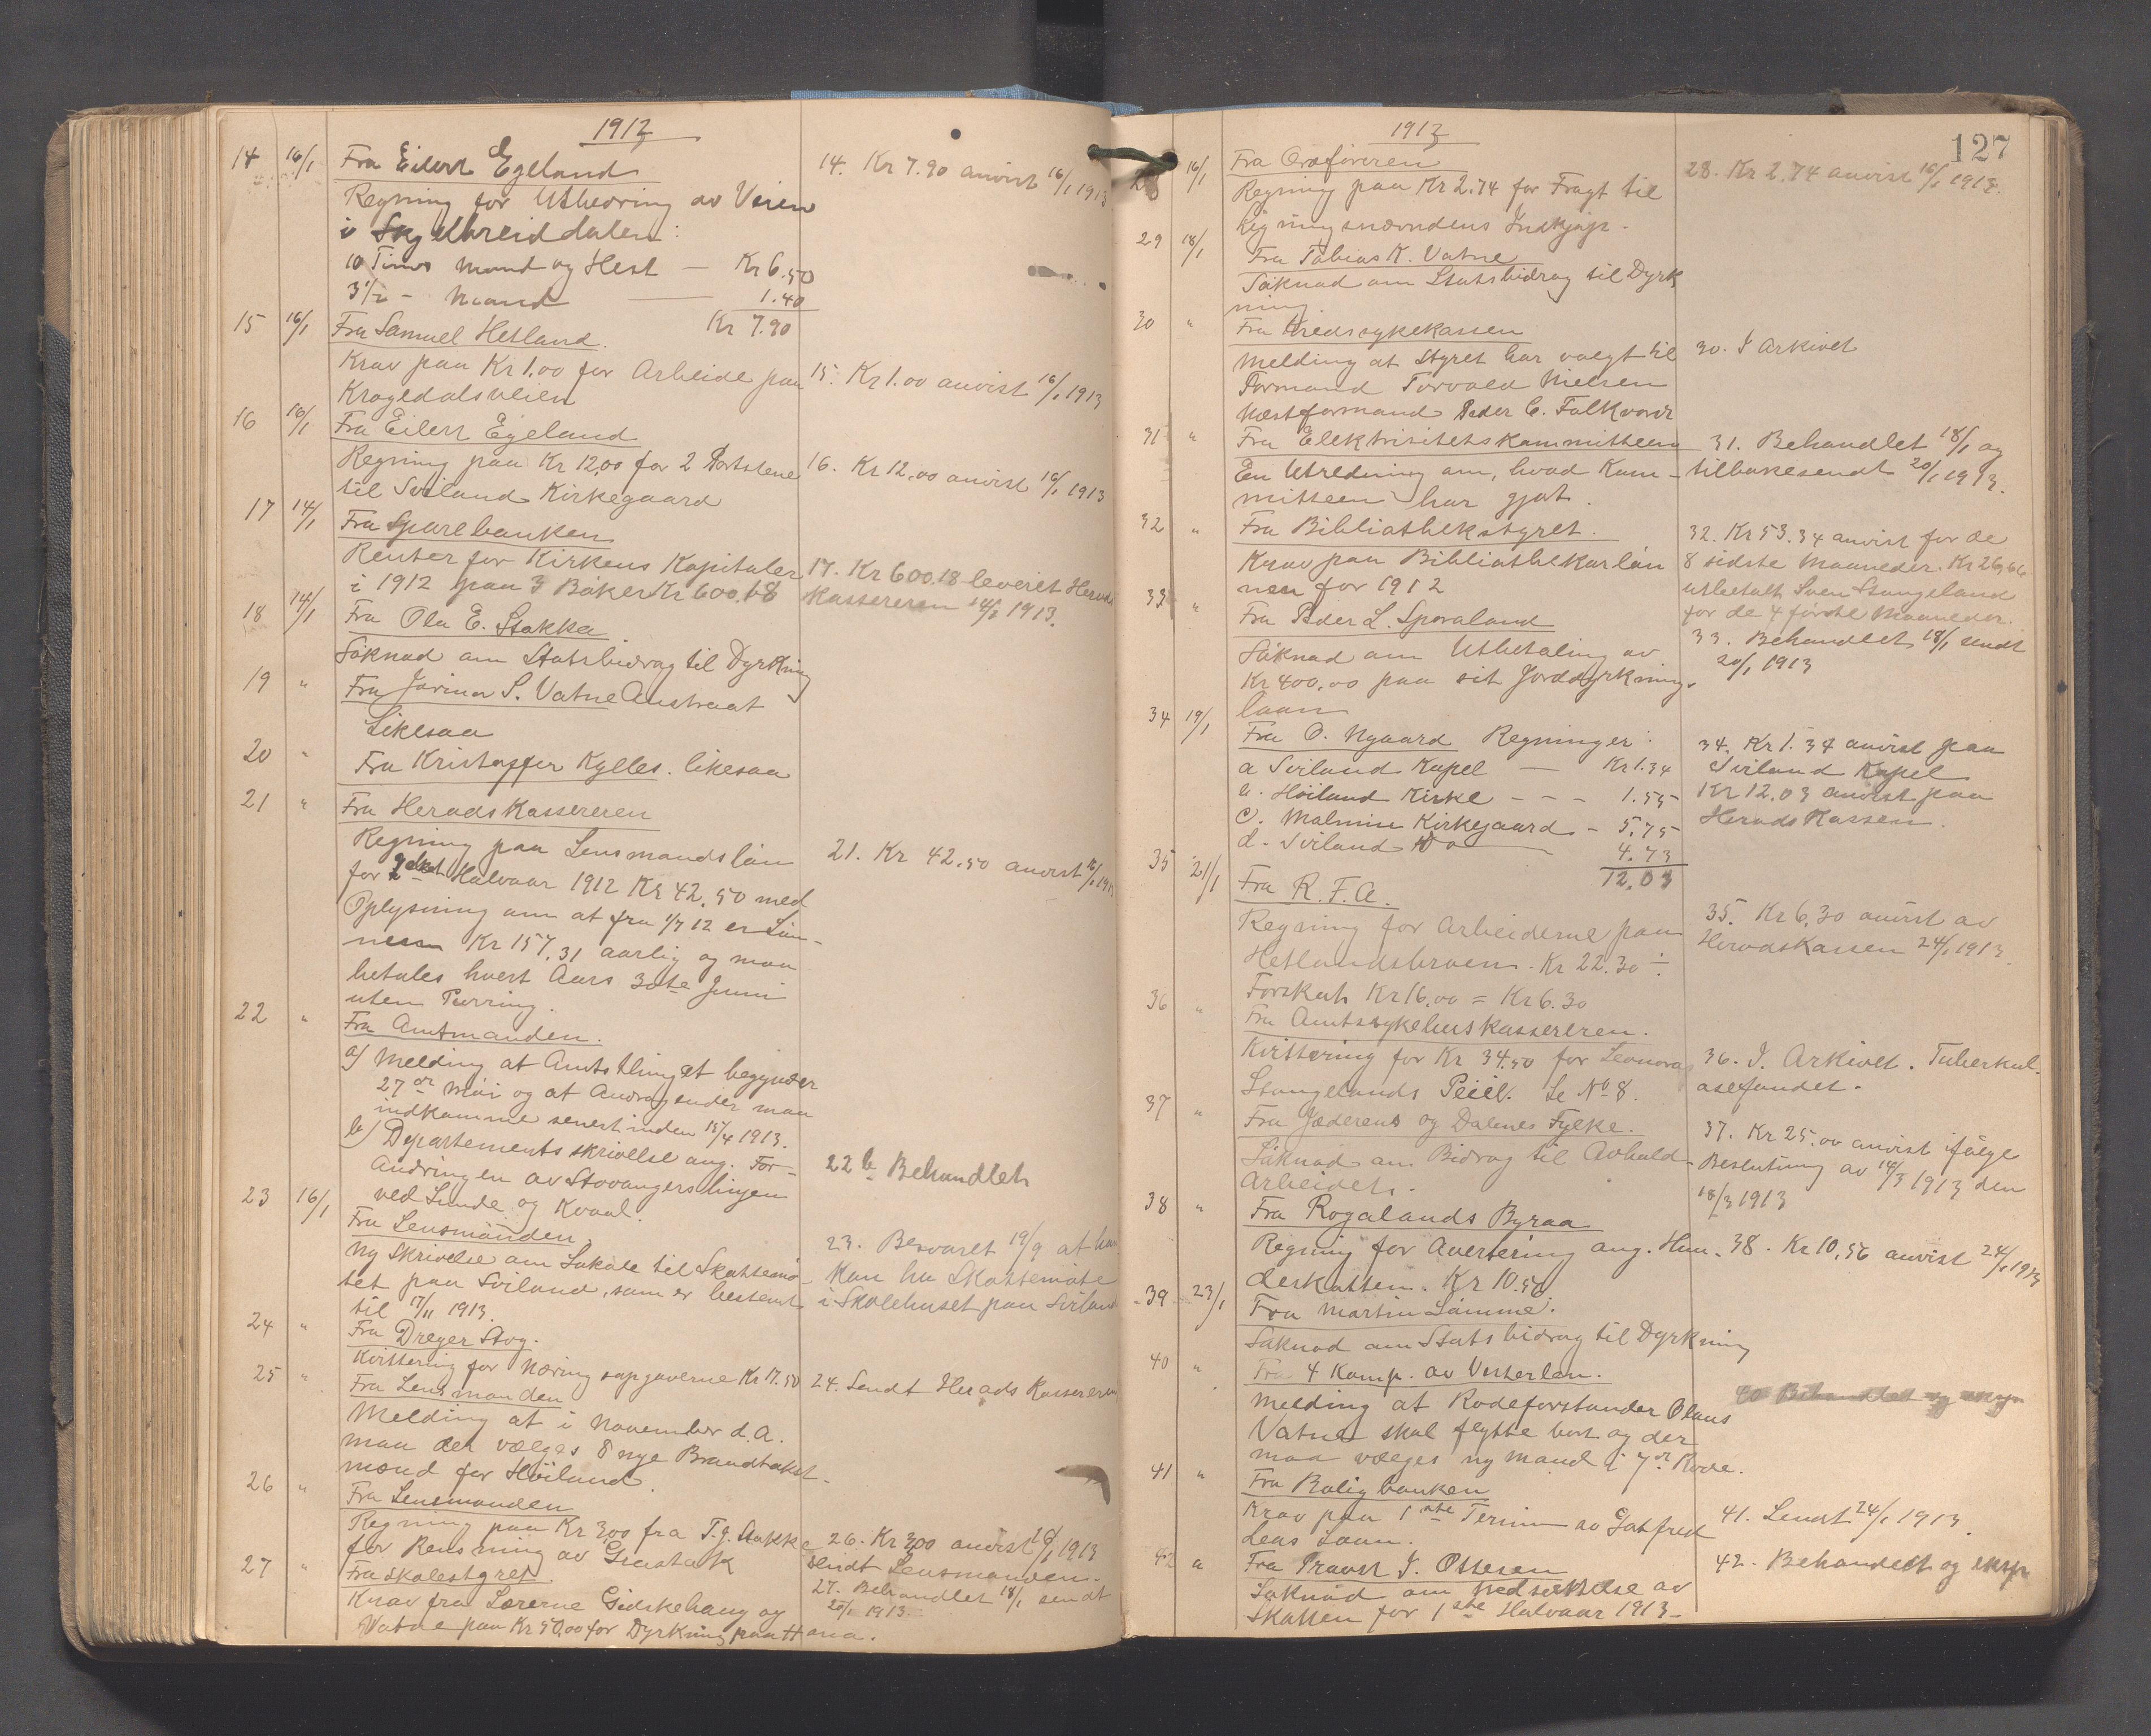 1913
14 16/1 Fra Eilert Egeland
Regning for Utbedring av Veien
i Skjelbreiddalen:
10 Timer Mand og Hest — Kr 6.50
3 1/2 - Mand — 1.40
Kr 7.90
14. Kr 7.90 anvist 16/1 1913
15 16/1 Fra Samuel Hetland.
Krav paa Kr 1.00 for Arbeide paa
Kragedalsveien
15. Kr 1.00 anvist 16/1 1913
16 16/1 Fra Eilert Egeland
Regning paa Kr 12,00 for 2 Portstene
til Soiland Kirkegaard
16. Kr 12.00 anvist 16/1 1913
17 14/1 Fra Sparebanken
Renter for Kirkens Kapitaler
i 1912 paa 3 Bøker Kr 600.18
17. Kr 600.18 leveret Herads
Kassereren 14/1 1913.
18 14/1 Fra Ola E. Stokka
Søknad om Statsbidrag til Dyrkning
19 " Fra Jorina S. Vatne Austraat
Likesaa
20 " Fra Kristoffer Kylles. likesaa
21 " Fra HeradsKassereren
Regning paa Lensmandsløn
for 2det Halvaar 1912 Kr 42.50 med
Oplysning om at fra 1/7 12 er Løn-
nen Kr 157.31 aarlig og maa
betales hvert Aars 30te Juni
uten Purring.
21. Kr 42.50 anvist 16/1 1913
22 " Fra Amtmanden.
a) Melding at Amtsthinget begynder
27de Mai og at Andragender maa
indkomme senest inden 15/4 1913.
b) Departementsskrivelse ang. For-
andringen av Stavangerslinjen
ved Lunde og Kvaal.
22 b Behandlet
23 16/1 Fra Lensmanden
Ny Skrivelse om Lokale til Skattemø-
tet paa Soiland, som er bestemt
til 17/11 1913.
23. Besvaret 19/9 at han
Kan ha Skattemøte
i Skolehuset paa Soiland
24 " Fra Dreyer Stvg.
Kvittering for Næringsopgaverne Kr 17.50
24. Sendt HeradsKassereren
25 " Fra Lensmanden
Melding at i November d.A.
maa der vælges 8 nye Brandtakst-
mænd for Høiland.
26 " Fra Lensmanden
Regning paa Kr 3,00 fra T. G. Stokke
for Rensning av Grastak
26. Kr 3,00 anvist 26/1 1913
sendt Lensmanden.
27 " Fra Skolestyret.
Krav fra Lærerne Gidskehaug og
Vatne paa Kr 50,00 for Dyrkning paa Hana.
27. Behandlet 18/1 sendt
20/1 1913.
1913
127
28 16/1 Fra Ordføreren
Regning paa Kr 2.74 for Fragt til
Ligningsnævndens Indkjøp.
28. Kr 2.74 anvist 16/1 1913.
29 18/1 Fra Tobias K. Vatne
Søknad om Statsbidrag til Dyrk
ning
30 " Fra Kredssykekassen
Melding at Styret har valgt til
Formand Torvald Nielsen
Næstformand Peder C. Falkvord
30. I Arkivet
31 " Fra Elektrisitetskommitteen
En Utredning om, hvad Kom-
mitteen har gjort.
31. Behandlet 18/1 og
tilbakesendt 20/1 1913.
32 " Fra Bibliothekstyret.
Krav paa Bibliothekarløn
nen for 1912
32. Kr 53.34 anvist for de
8 sidste Maaneder. Kr 26,66
utbetalt Sven Stangeland
for de 4 første Maaneder.
33 " Fra Peder L. Sporaland
Søknad om Utbetaling av
Kr 400,00 paa sit Jorddyrknings
laan
33. Behandlet 18/1 sendt
20/1 1913
34 19/1 Fra O. Nygaard Regninger:
a Soiland Kapel — Kr 1.34
b. Høiland Kirke - - - 1.55
c. Malmin Kirkegaard - 5.75
d. Soiland Do — 4.73
12,03
34. Kr 1.34 anvist paa
Soiland Kapel
Kr 12.03 anvist paa
HeradsKassen.
35 21/1 Fra R. F. A.
Regning for Arbeiderne paa
Hetlandsbroen. Kr 22.30 ÷
Forskuds Kr 16.00 = Kr 6.30
35. Kr 6,30 anvist av
HeradsKassen 24/1 1913.
36 " Fra AmtssykehusKassereren.
Kvittering for Kr 34.50 for Leonora
Stangelands Pleie. Se No 8.
36. I. Arkivet. Tuberkul.
osefondet.
37 " Fra Jæderens og Dalenes Fylke.
Søknad om Bidrag til Avhold-
Arbeidet.
37. Kr 25.00 anvist ifølge
Beslutning av 14/3 1913 den
18/3 1913
38 " Fra Rogalands Byraa
Regning for Avertering ang. Hun-
deskatten. Kr 10.56
38. Kr 10,56 anvist 24/1 1913
39 23/1 Fra Martin Lømme.
Søknad om Statsbidrag til Dyrkning
40 " Fra 4 Komp. av Vesterlen.
Melding at Rodeforstander Olaus
Vatne skal flytte bort og der
maa vælges ny Mand i 7de Rode.
40 Behandlet og eksp
41 " Fra Boligbanken
Krav paa 1ste Termin av Gotfred
Leas Laan.
41. Sendt 24/1 1913.
42 " Fra Provst J. Ottesen
Søknad om Nedsættelse av
Skatten for 1ste Halvaar 1913-
42. Behandlet og eksp